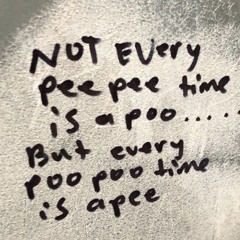 NOT EVery
pee pee time
is a poo.....
But every
poo poo time
is a pee